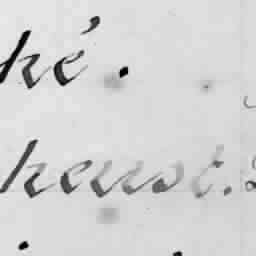 hé.
heust.